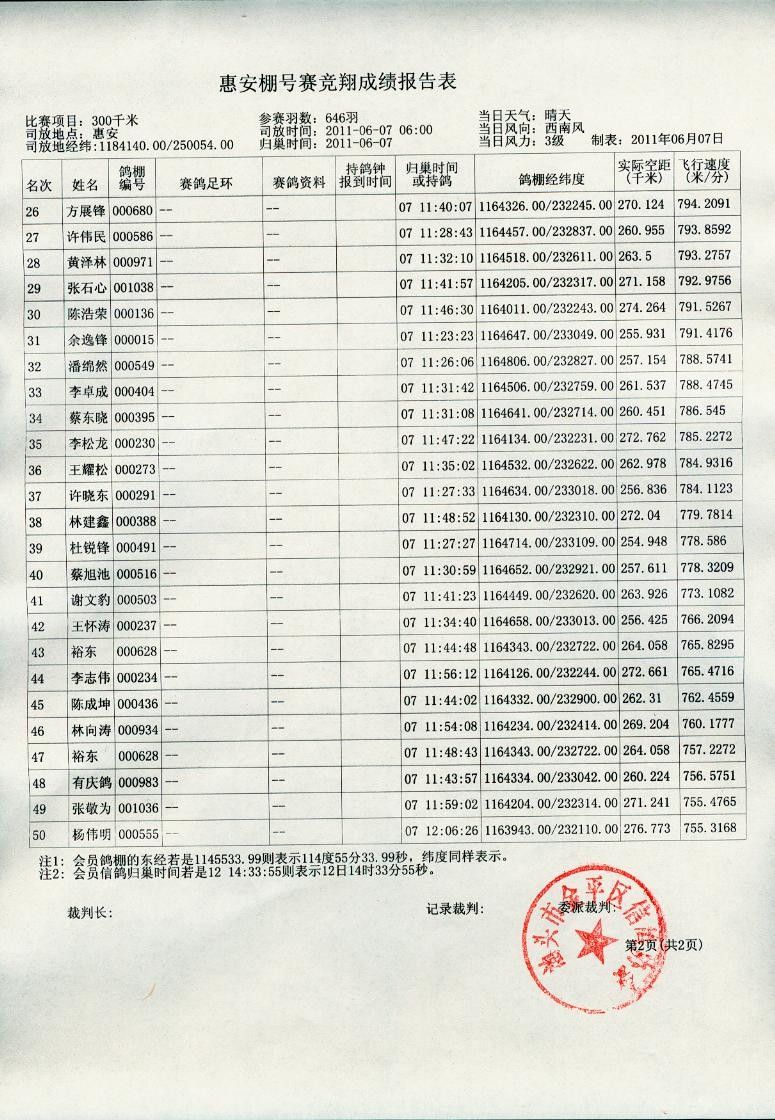 惠安棚号赛竞翔成绩报告表
比赛项目: 300千米 参赛羽数: 646羽 当日天气: 晴天
司放地点: 惠安 司放时间: 2011-06-07 06:00 当日风向: 西南风
司放地经纬:1184140.00/250054.00 归巢时间: 2011-06-07 当日风力: 3级 制表: 2011年06月07日
名次 姓名 鸽棚编号 赛鸽足环 赛鸽资料 持鸽钟报到时间 归巢时间或持鸽 鸽棚经纬度 实际空距(千米) 飞行速度(米/分)
26 方展锋 000680 -- -- 07 11:40:07 1164326.00/232245.00 270.124 794.2091
27 许伟民 000586 -- -- 07 11:28:43 1164457.00/232837.00 260.955 793.8592
28 黄泽林 000971 -- -- 07 11:32:10 1164518.00/232611.00 263.5 793.2757
29 张石心 001038 -- -- 07 11:41:57 1164205.00/232317.00 271.158 792.9756
30 陈浩荣 000136 -- -- 07 11:46:30 1164011.00/232243.00 274.264 791.5267
31 余逸锋 000015 -- -- 07 11:23:23 1164647.00/233049.00 255.931 791.4176
32 潘绵然 000549 -- -- 07 11:26:06 1164806.00/232827.00 257.154 788.5741
33 李卓成 000404 -- -- 07 11:31:42 1164506.00/232759.00 261.537 788.4745
34 蔡东晓 000395 -- -- 07 11:31:08 1164641.00/232714.00 260.451 786.545
35 李松龙 000230 -- -- 07 11:47:22 1164134.00/232231.00 272.762 785.2272
36 王耀松 000273 -- -- 07 11:35:02 1164532.00/232622.00 262.978 784.9316
37 许晓东 000291 -- -- 07 11:27:33 1164634.00/233018.00 256.836 784.1123
38 林建鑫 000388 -- -- 07 11:48:52 1164130.00/232310.00 272.04 779.7814
39 杜锐锋 000491 -- -- 07 11:27:27 1164714.00/233109.00 254.948 778.586
40 蔡旭池 000516 -- -- 07 11:30:59 1164652.00/232921.00 257.611 778.3209
41 谢文豹 000503 -- -- 07 11:41:23 1164449.00/232620.00 263.926 773.1082
42 王怀涛 000237 -- -- 07 11:34:40 1164658.00/233013.00 256.425 766.2094
43 裕东 000628 -- -- 07 11:44:48 1164343.00/232722.00 264.058 765.8295
44 李志伟 000234 -- -- 07 11:56:12 1164126.00/232244.00 272.661 765.4716
45 陈成坤 000436 -- -- 07 11:44:02 1164332.00/232900.00 262.31 762.4559
46 林向涛 000934 -- -- 07 11:54:08 1164234.00/232414.00 269.204 760.1777
47 裕东 000628 -- -- 07 11:48:43 1164343.00/232722.00 264.058 757.2272
48 有庆鸽 000983 -- -- 07 11:43:57 1164334.00/233042.00 260.224 756.5751
49 张敬为 001036 -- -- 07 11:59:02 1164204.00/232314.00 271.241 755.4765
50 杨伟明 000555 -- -- 07 12:06:26 1163943.00/232110.00 276.773 755.3168
注1: 会员鸽棚的东经若是1145533.99则表示114度55分33.99秒，纬度同样表示。
注2: 会员信鸽归巢时间若是12 14:33:55则表示12日14时33分55秒。
裁判长: 记录裁判: 委派裁判:
第2页(共2页)
头市金平区信鸽